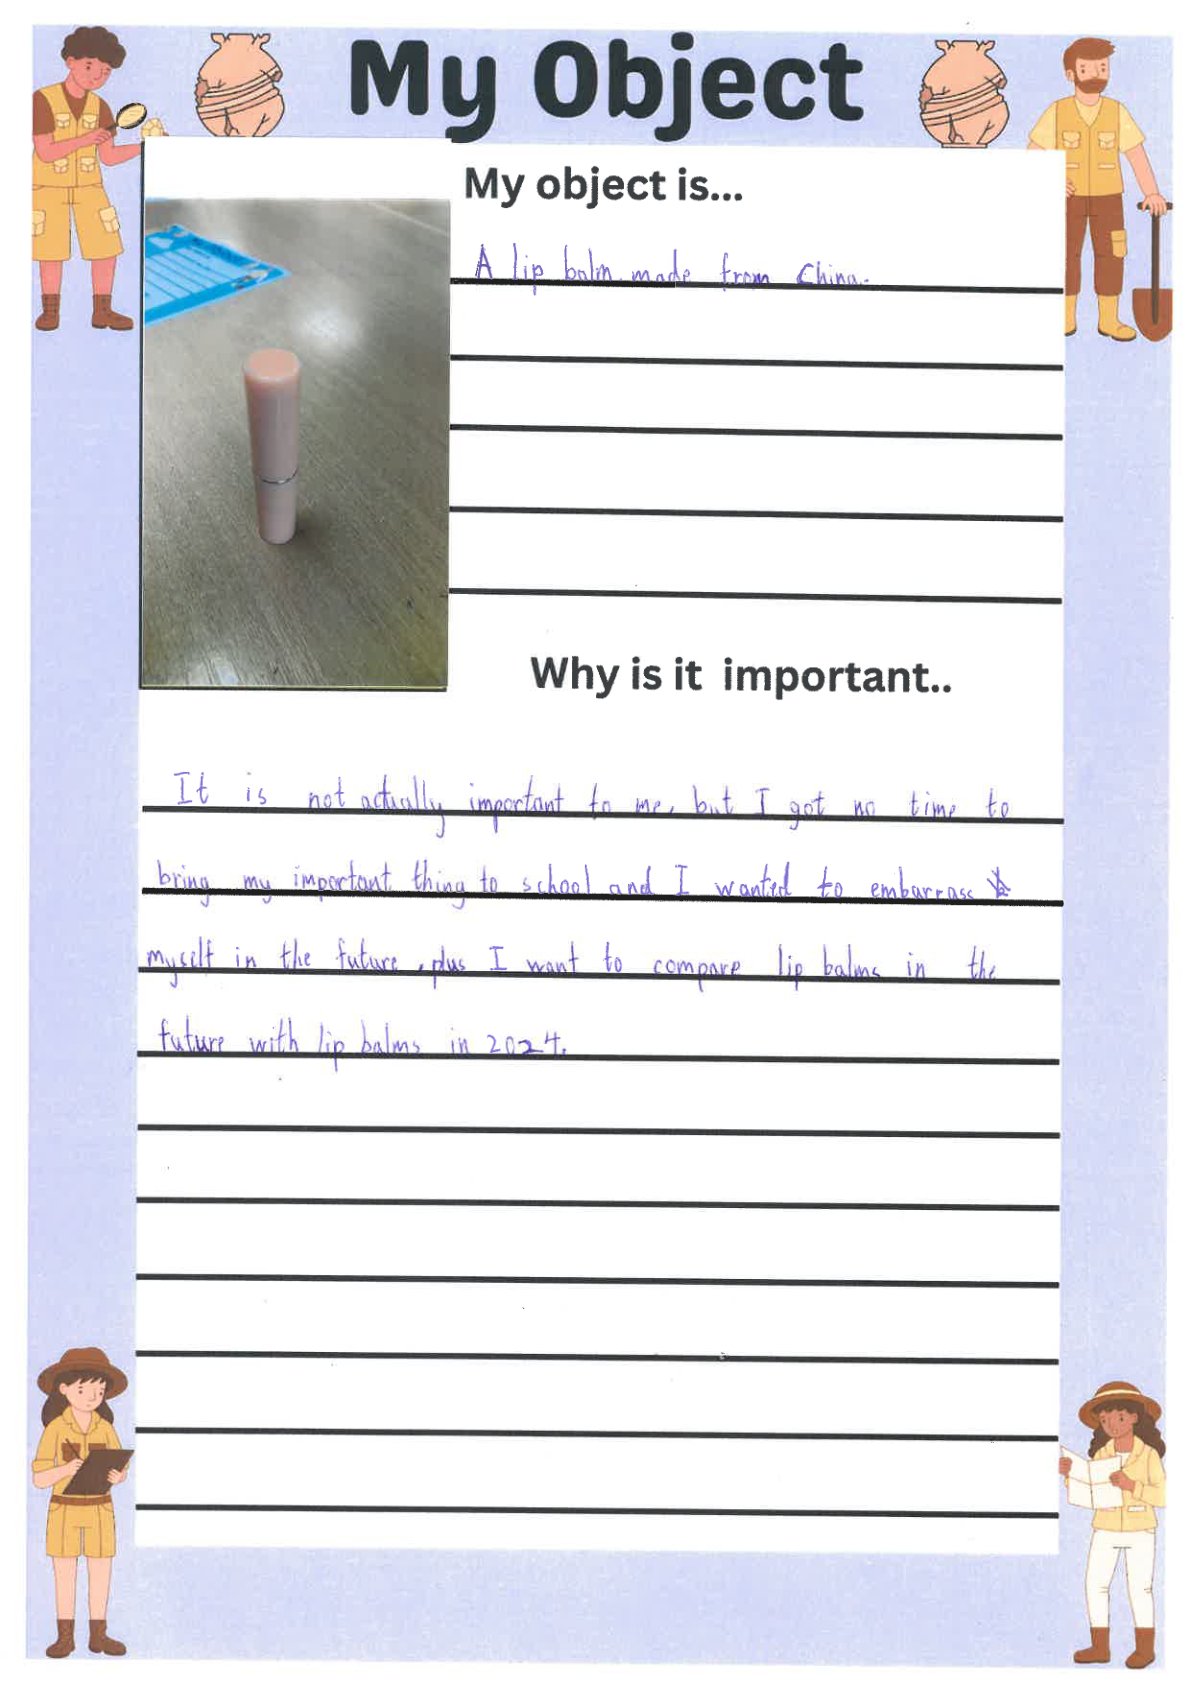 My Object
My object is...
A lip balm made from China.
Why is it important..
It is not actually important to me, but I got no time to
bring my important thing to school and I wanted to embarrass
myself in the future, plus I want to compare lip balms in the
future with lip balms in 2024.